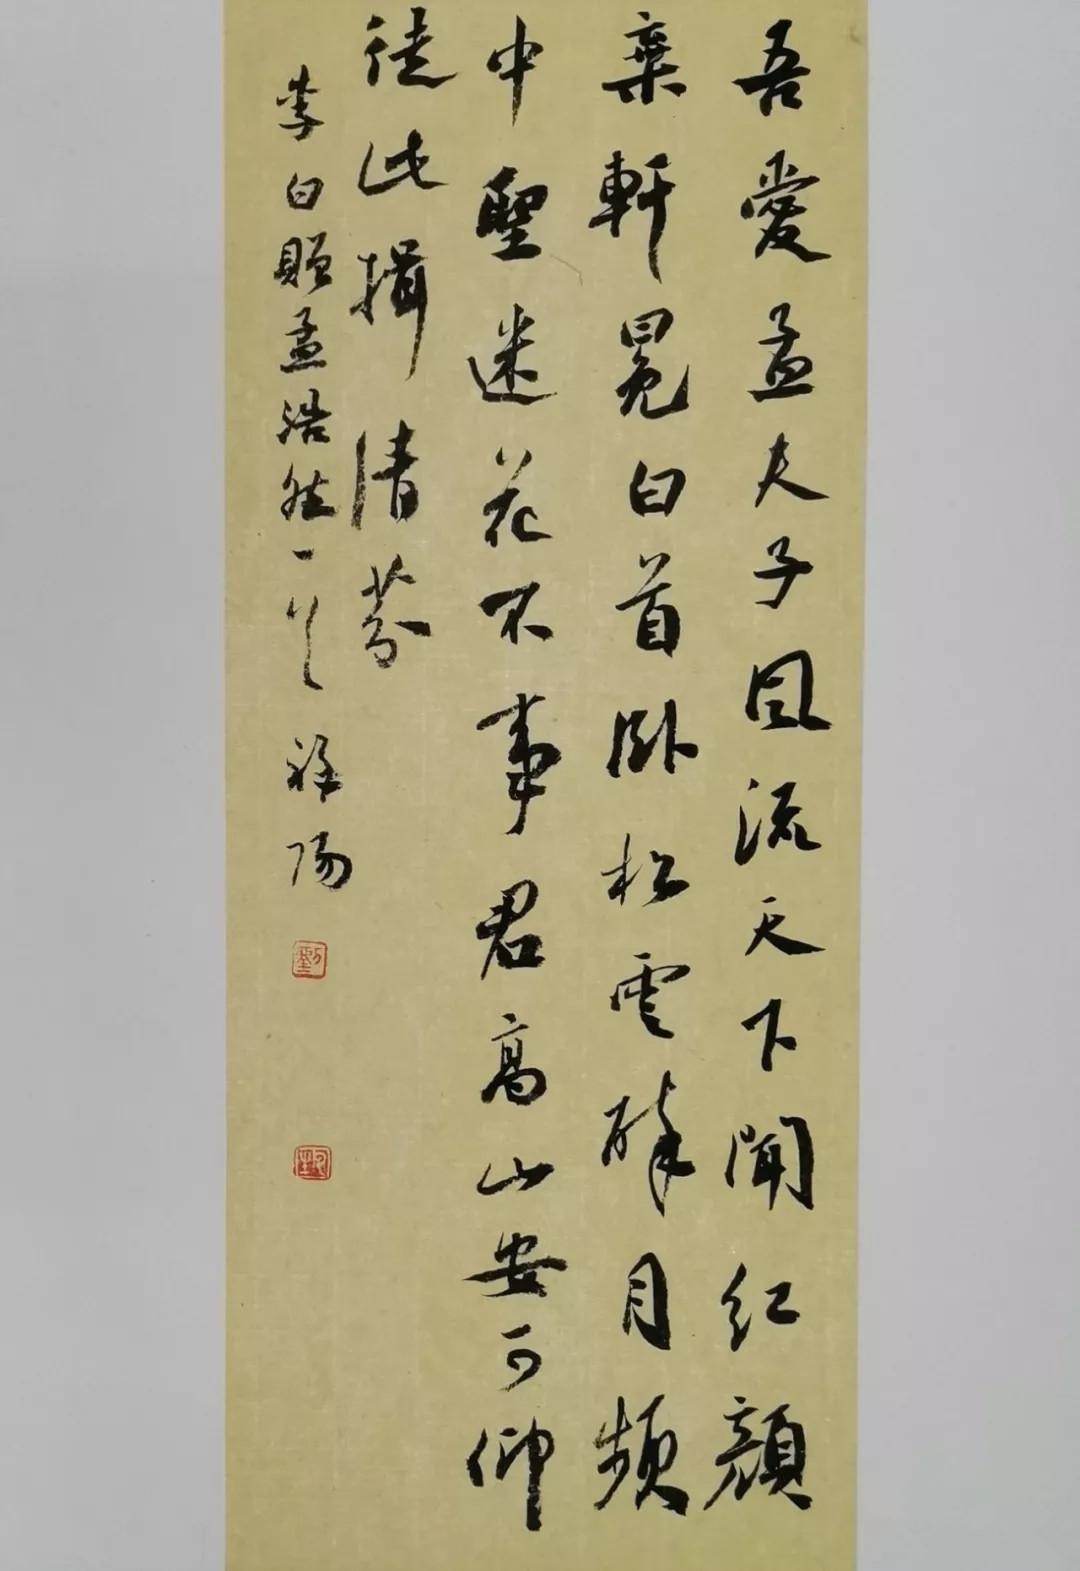 吾愛孟夫子風流天下聞紅顏
棄軒冕白首臥松雲醉月頻
中聖迷花不事君高山安可仰
徒此揖清芬
李白贈孟浩然一首祥陽